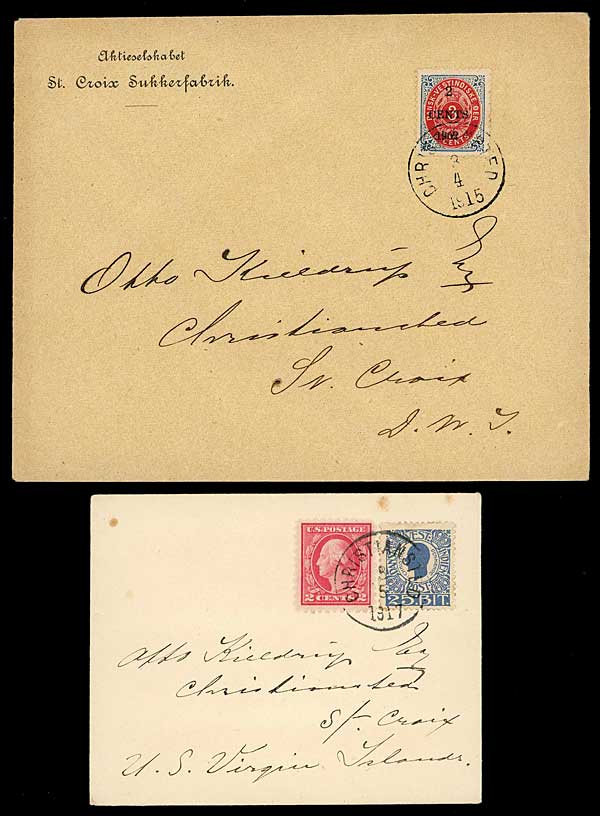 Aktieselskabet
St. Croix Sukkerfabrik.
DANSK-VESTINDISKE ØER
2
CENTS
1902
3
CENTS
CHRISTIANSTED
3
4
1915
Otto Kieldrup Esq
Christiansted
St. Croix
D. W. I.
U.S. POSTAGE
2 CENTS 2
CHRISTIANSTED
8
5
1917
25 BIT
Otto Kieldrup Esq
Christiansted
St. Croix
U. S. Virgin Islands.